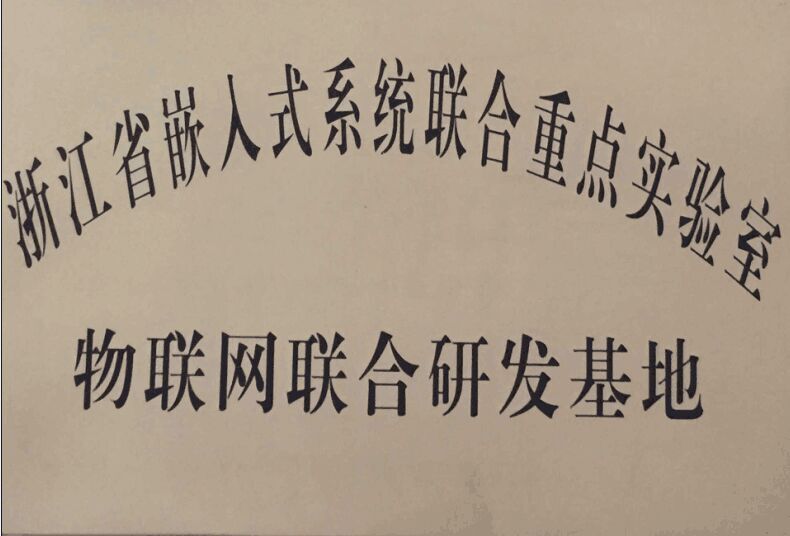 浙江省嵌入式系统联合重点实验室
物联网联合研发基地